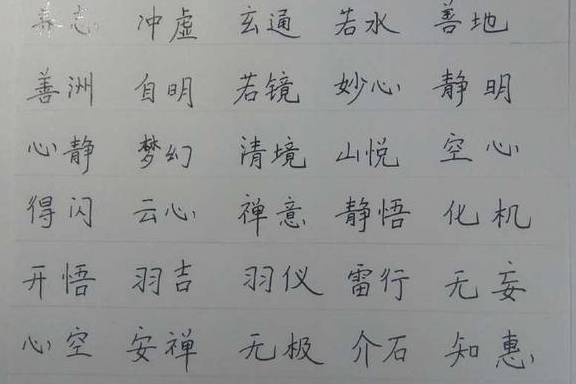 养志 冲虚 玄通 若水 善地
善洲 自明 若镜 妙心 静明
心静 梦幻 清境 山悦 空心
得闪 云心 禅意 静悟 化机
开悟 羽吉 羽仪 雷行 无妄
心空 安禅 无极 介石 知惠